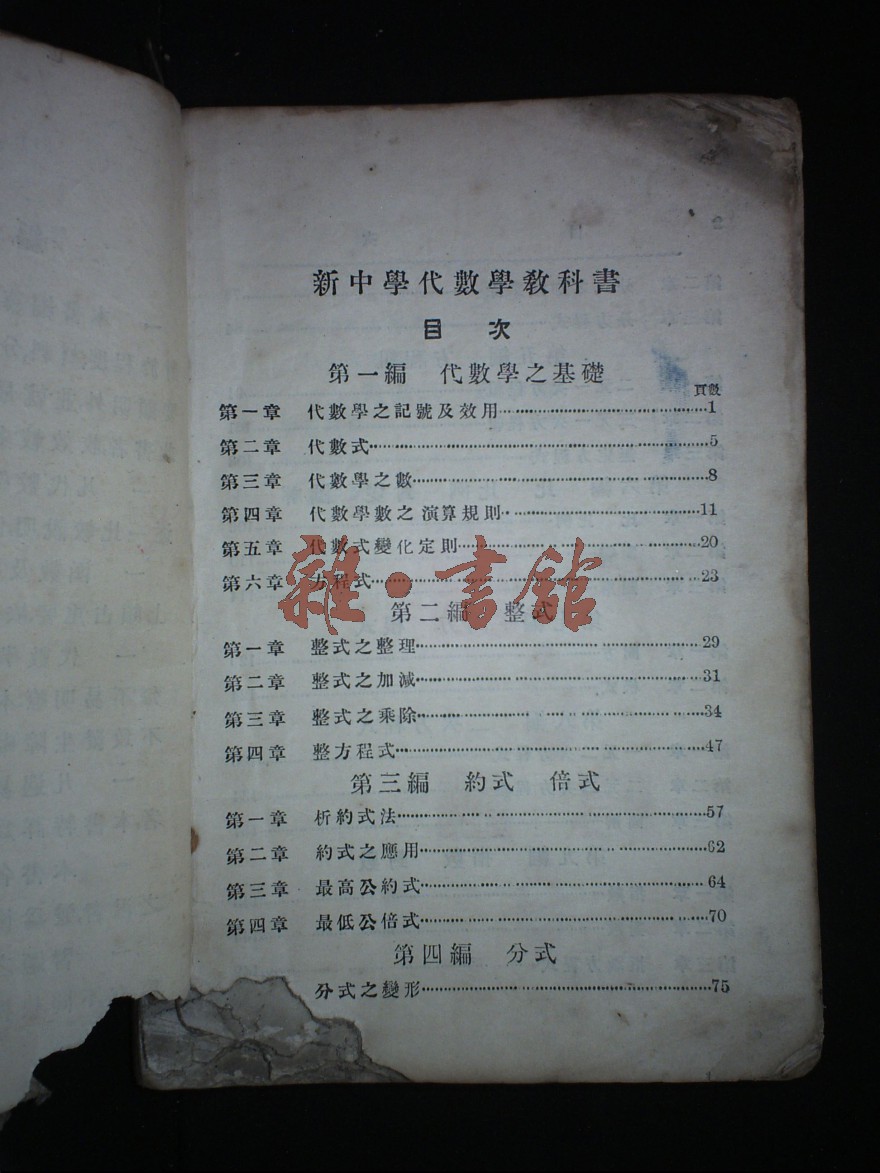 新中學代數學敎科書
目次
第一編 代數學之基礎
頁數
第一章 代數學之記號及效用……1
第二章 代數式……5
第三章 代數學之數……8
第四章 代數學數之演算規則……11
第五章 代數式變化定則……20
第六章 方程式……23
雜·書館
第二編 整式
第一章 整式之整理……29
第二章 整式之加減……31
第三章 整式之乘除……34
第四章 整方程式……47
第三編 約式 倍式
第一章 析約式法……57
第二章 約式之應用……62
第三章 最高公約式……64
第四章 最低公倍式……70
第四編 分式
分式之變形……75